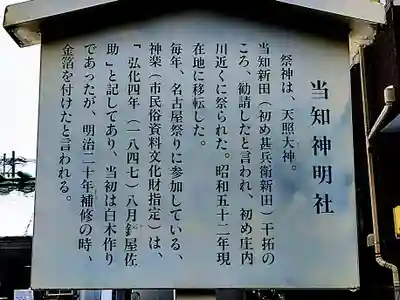 当知神明社
祭神は、天照大神。
当知新田(初め甚兵衛新田)干拓の
ころ、勧請したと言われ、初め庄内
川近くに祭られた。昭和五十二年現
在地に移転した。
毎年、名古屋祭りに参加している、
神楽(市民俗資料文化財指定)は、
「弘化四年(一八四七)八月釘屋佐
助」と記してあり、当初は白木作り
であったが、明治二十年補修の時、
金箔を付けたと言われる。